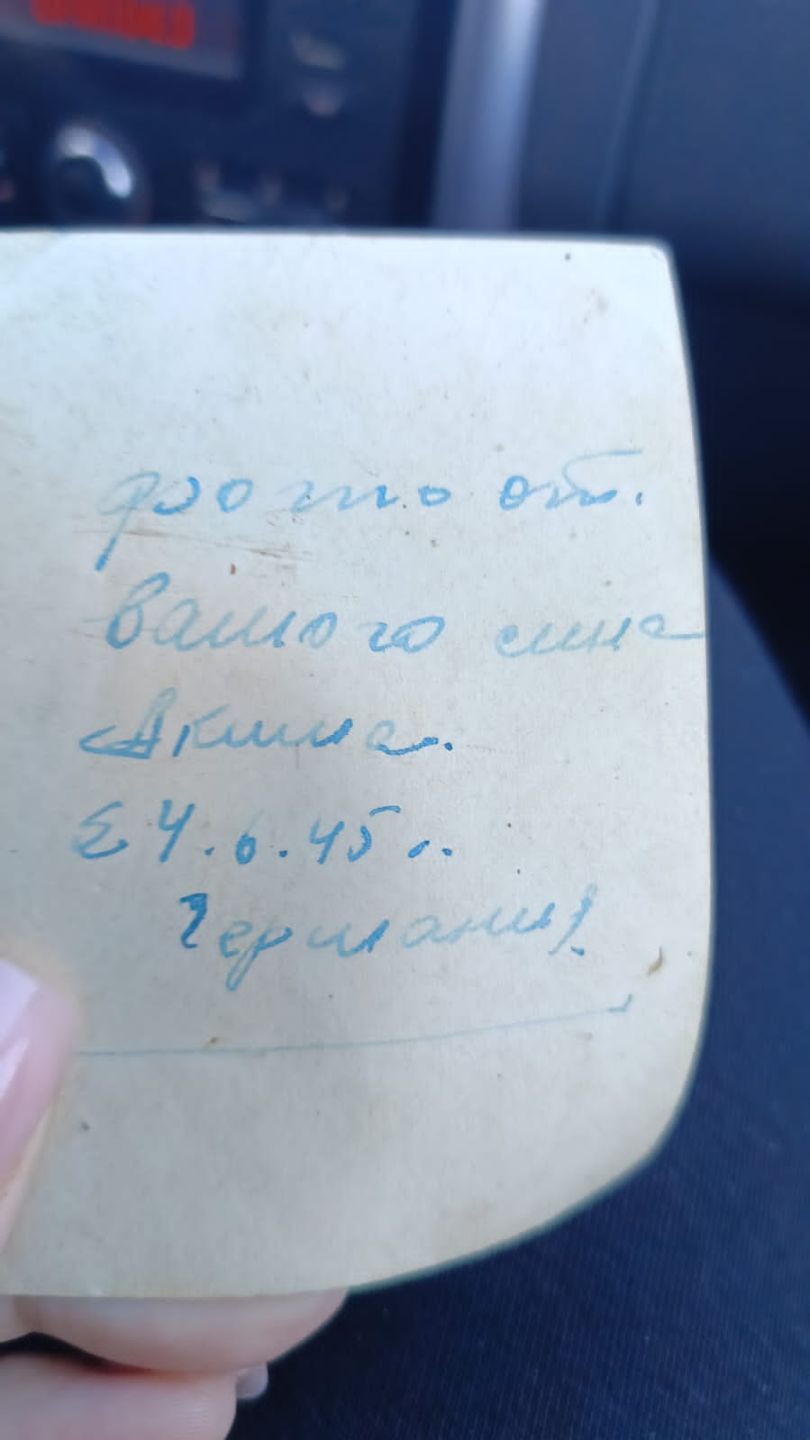 фото от.
вашого сина
Акима.
24.6.45..
Германия.